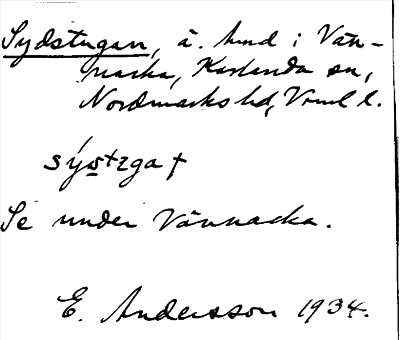 Sydstugan, ä. hmd i Vän-
nacka, Karlanda sn,
Nordmarks hd, Vrml l.
Se under Vännacka.
E. Andersson 1934.